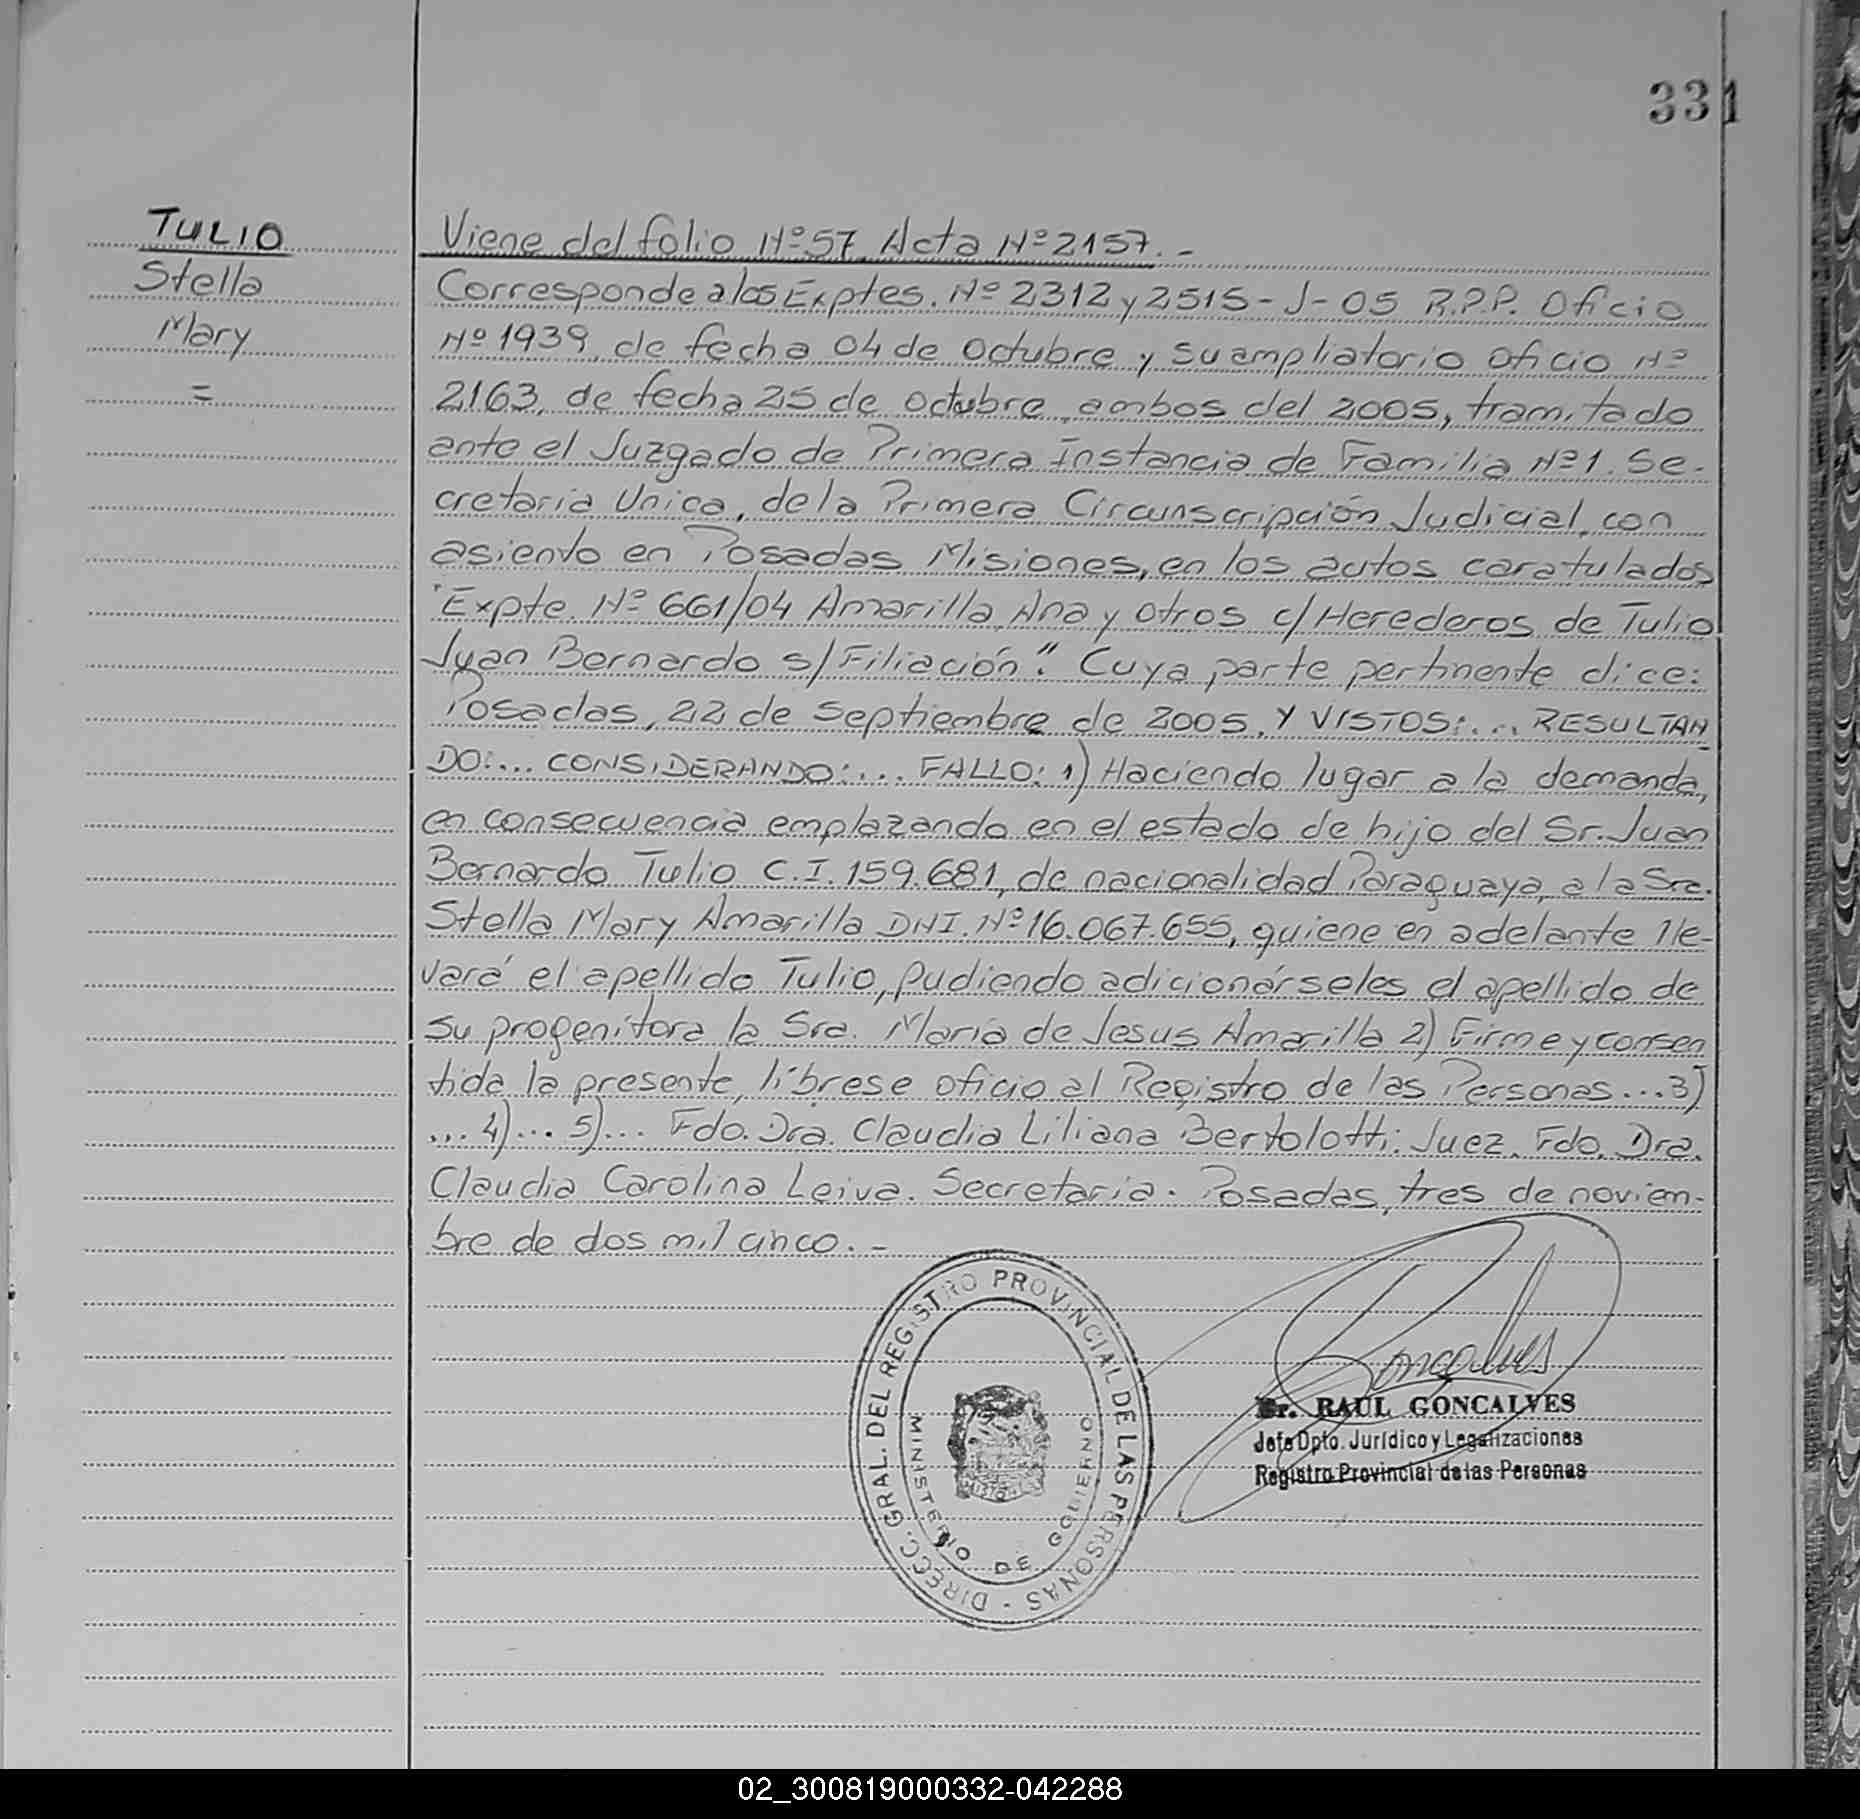 331
TULIO
Stella
Mary
=
Viene del folio Nº 57 Acta Nº 2157.-
Corresponde a los Exptes. Nº 2312 y 2515-J-05 R.P.P. Oficio
Nº 1939, de fecha 04 de Octubre y su ampliatorio Oficio Nº
2163, de fecha 25 de octubre, ambos del 2005, tramitado
ante el Juzgado de Primera Instancia de Familia Nº 1. Se-
cretaria Unica, de la Primera Circunscripción Judicial, con
asiento en Posadas Misiones, en los autos caratulados
"Expte. Nº 661/04 Amarilla, Ana y Otros c/Herederos de Tulio
Juan Bernardo s/Filiación". Cuya parte pertinente dice:
Posadas, 22 de Septiembre de 2005, Y VISTOS:... RESULTAN
DO:... CONSIDERANDO:... FALLO: 1) Haciendo lugar a la demanda,
en consecuencia emplazando en el estado de hijo del Sr. Juan
Bernardo Tulio C.I. 159.681, de nacionalidad Paraguaya, a la Sra.
Stella Mary Amarilla DNI. Nº 16.067.655, quiene en adelante lle-
vará el apellido Tulio, pudiendo adicionárseles el apellido de
su progenitora la Sra. María de Jesus Amarilla 2) Firme y consen
tida la presente, líbrese oficio al Registro de las Personas...3)
...4)...5)... Fdo. Dra. Claudia Liliana Bertolotti: Juez. Fdo. Dra.
Claudia Carolina Leiva. Secretaria. Posadas, tres de noviem-
bre de dos mil cinco.-
DIRECC. GRAL. DEL REGISTRO PROVINCIAL DE LAS PERSONAS -
MINISTERIO DE GOBIERNO
Goncalves
Dr. RAUL GONCALVES
Jefe Dpto. Jurídico y Legalizaciones
Registro Provincial de las Personas
02_300819000332-042288